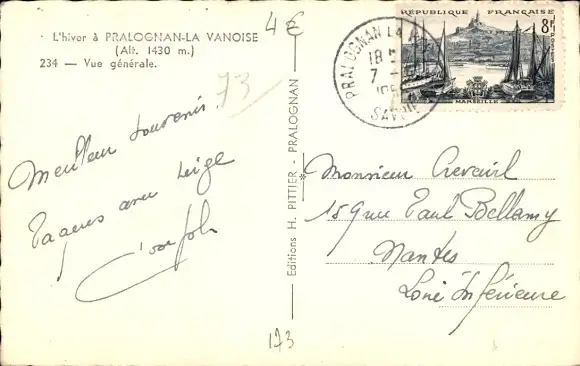 L'hiver à PRALOGNAN-LA VANOISE
(Alt. 1430 m.)
234 — Vue générale.
4€
73
Meilleur souvenir
neige
Editions H. PITTIER - PRALOGNAN
173
PRALOGNAN LA
18
7 -
SAVOIE
RÉPUBLIQUE FRANÇAISE
8F
POSTES
MARSEILLE
Monsieur Creveuil
15 rue Paul Bellamy
Nantes
Loire Inférieure